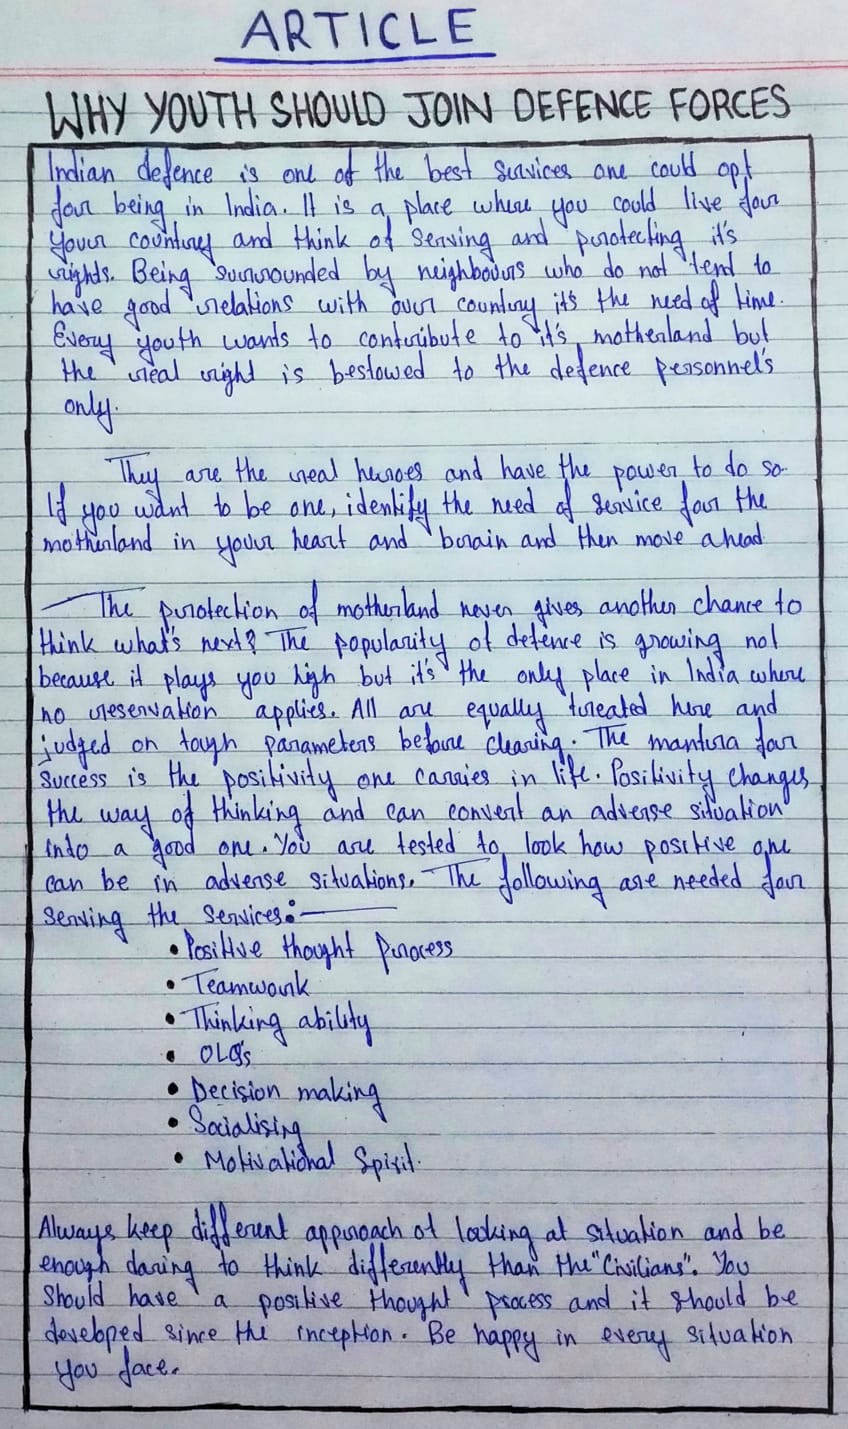 ARTICLE
WHY YOUTH SHOULD JOIN DEFENCE FORCES
Indian defence is one of the best services one could opt
for being in India. It is a place where you could live for
your country and think of serving and protecting it's
rights. Being surrounded by neighbours who do not tend to
have good relations with our country it's the need of time.
Every youth wants to contribute to it's motherland but
the real right is bestowed to the defence personnel's
only.
They are the real heroes and have the power to do so.
If you want to be one, identify the need of service for the
motherland in your heart and brain and then move ahead
The protection of motherland never gives another chance to
think what's next? The popularity of defence is growing not
because it plays you high but it's the only place in India where
no reservation applies. All are equally treated here and
judged on tough parameters before clearing. The mantra for
success is the positivity one carries in life. Positivity changes
the way of thinking and can convert an adverse situation
into a good one. You are tested to look how positive one
can be in adverse situations. The following are needed for
serving the services:-
• Positive thought process
• Teamwork
• Thinking ability
• OLQ's
• Decision making
• Socialising
• Motivational Spirit.
Always keep different approach of looking at situation and be
enough daring to think differently than the "Civilians". You
should have a positive thought process and it should be
developed since the inception. Be happy in every situation
you face.